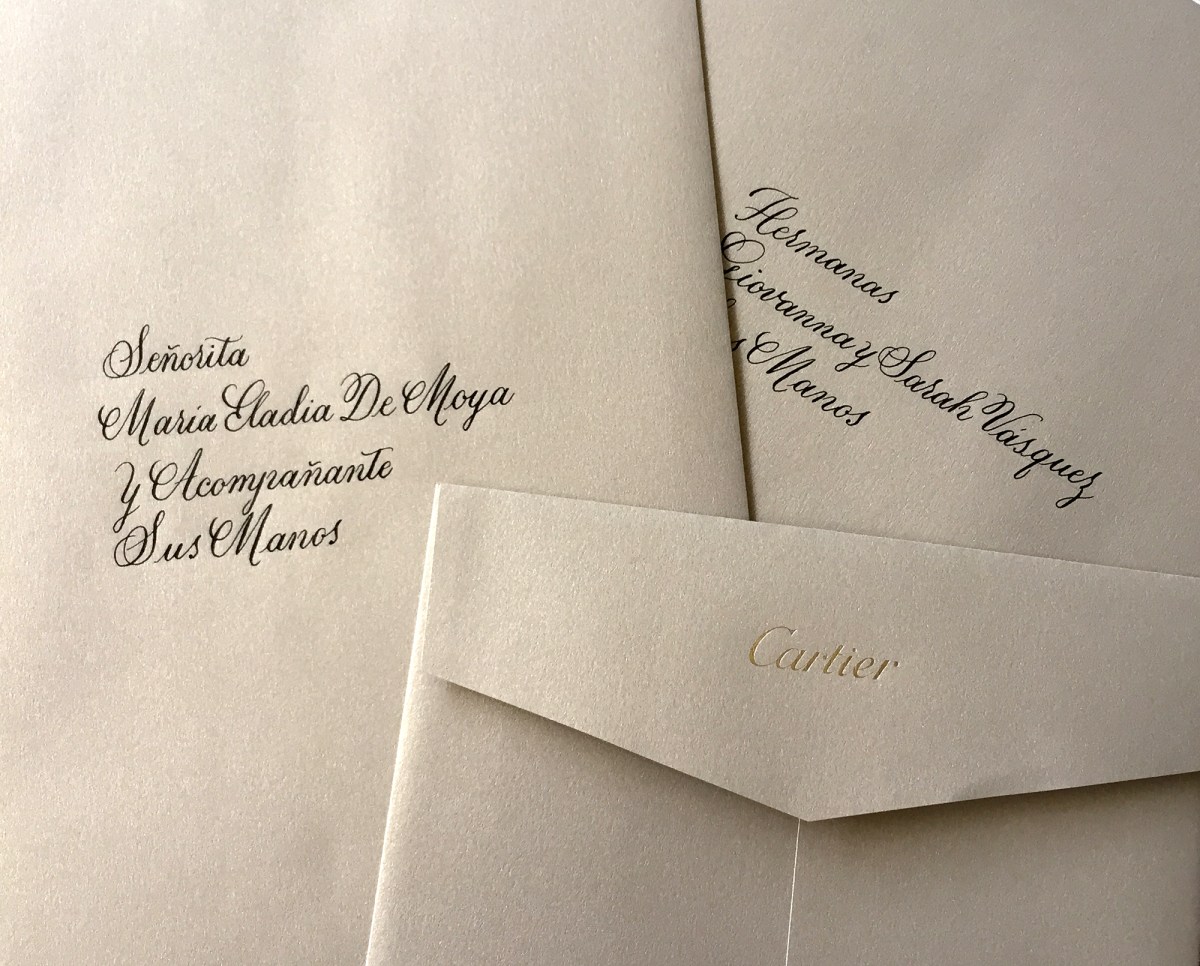 Señorita
María Eladia De Moya
Y Acompañante
Sus Manos
Hermanas
Giovanna y Sarah Vásquez
s Manos
Cartier